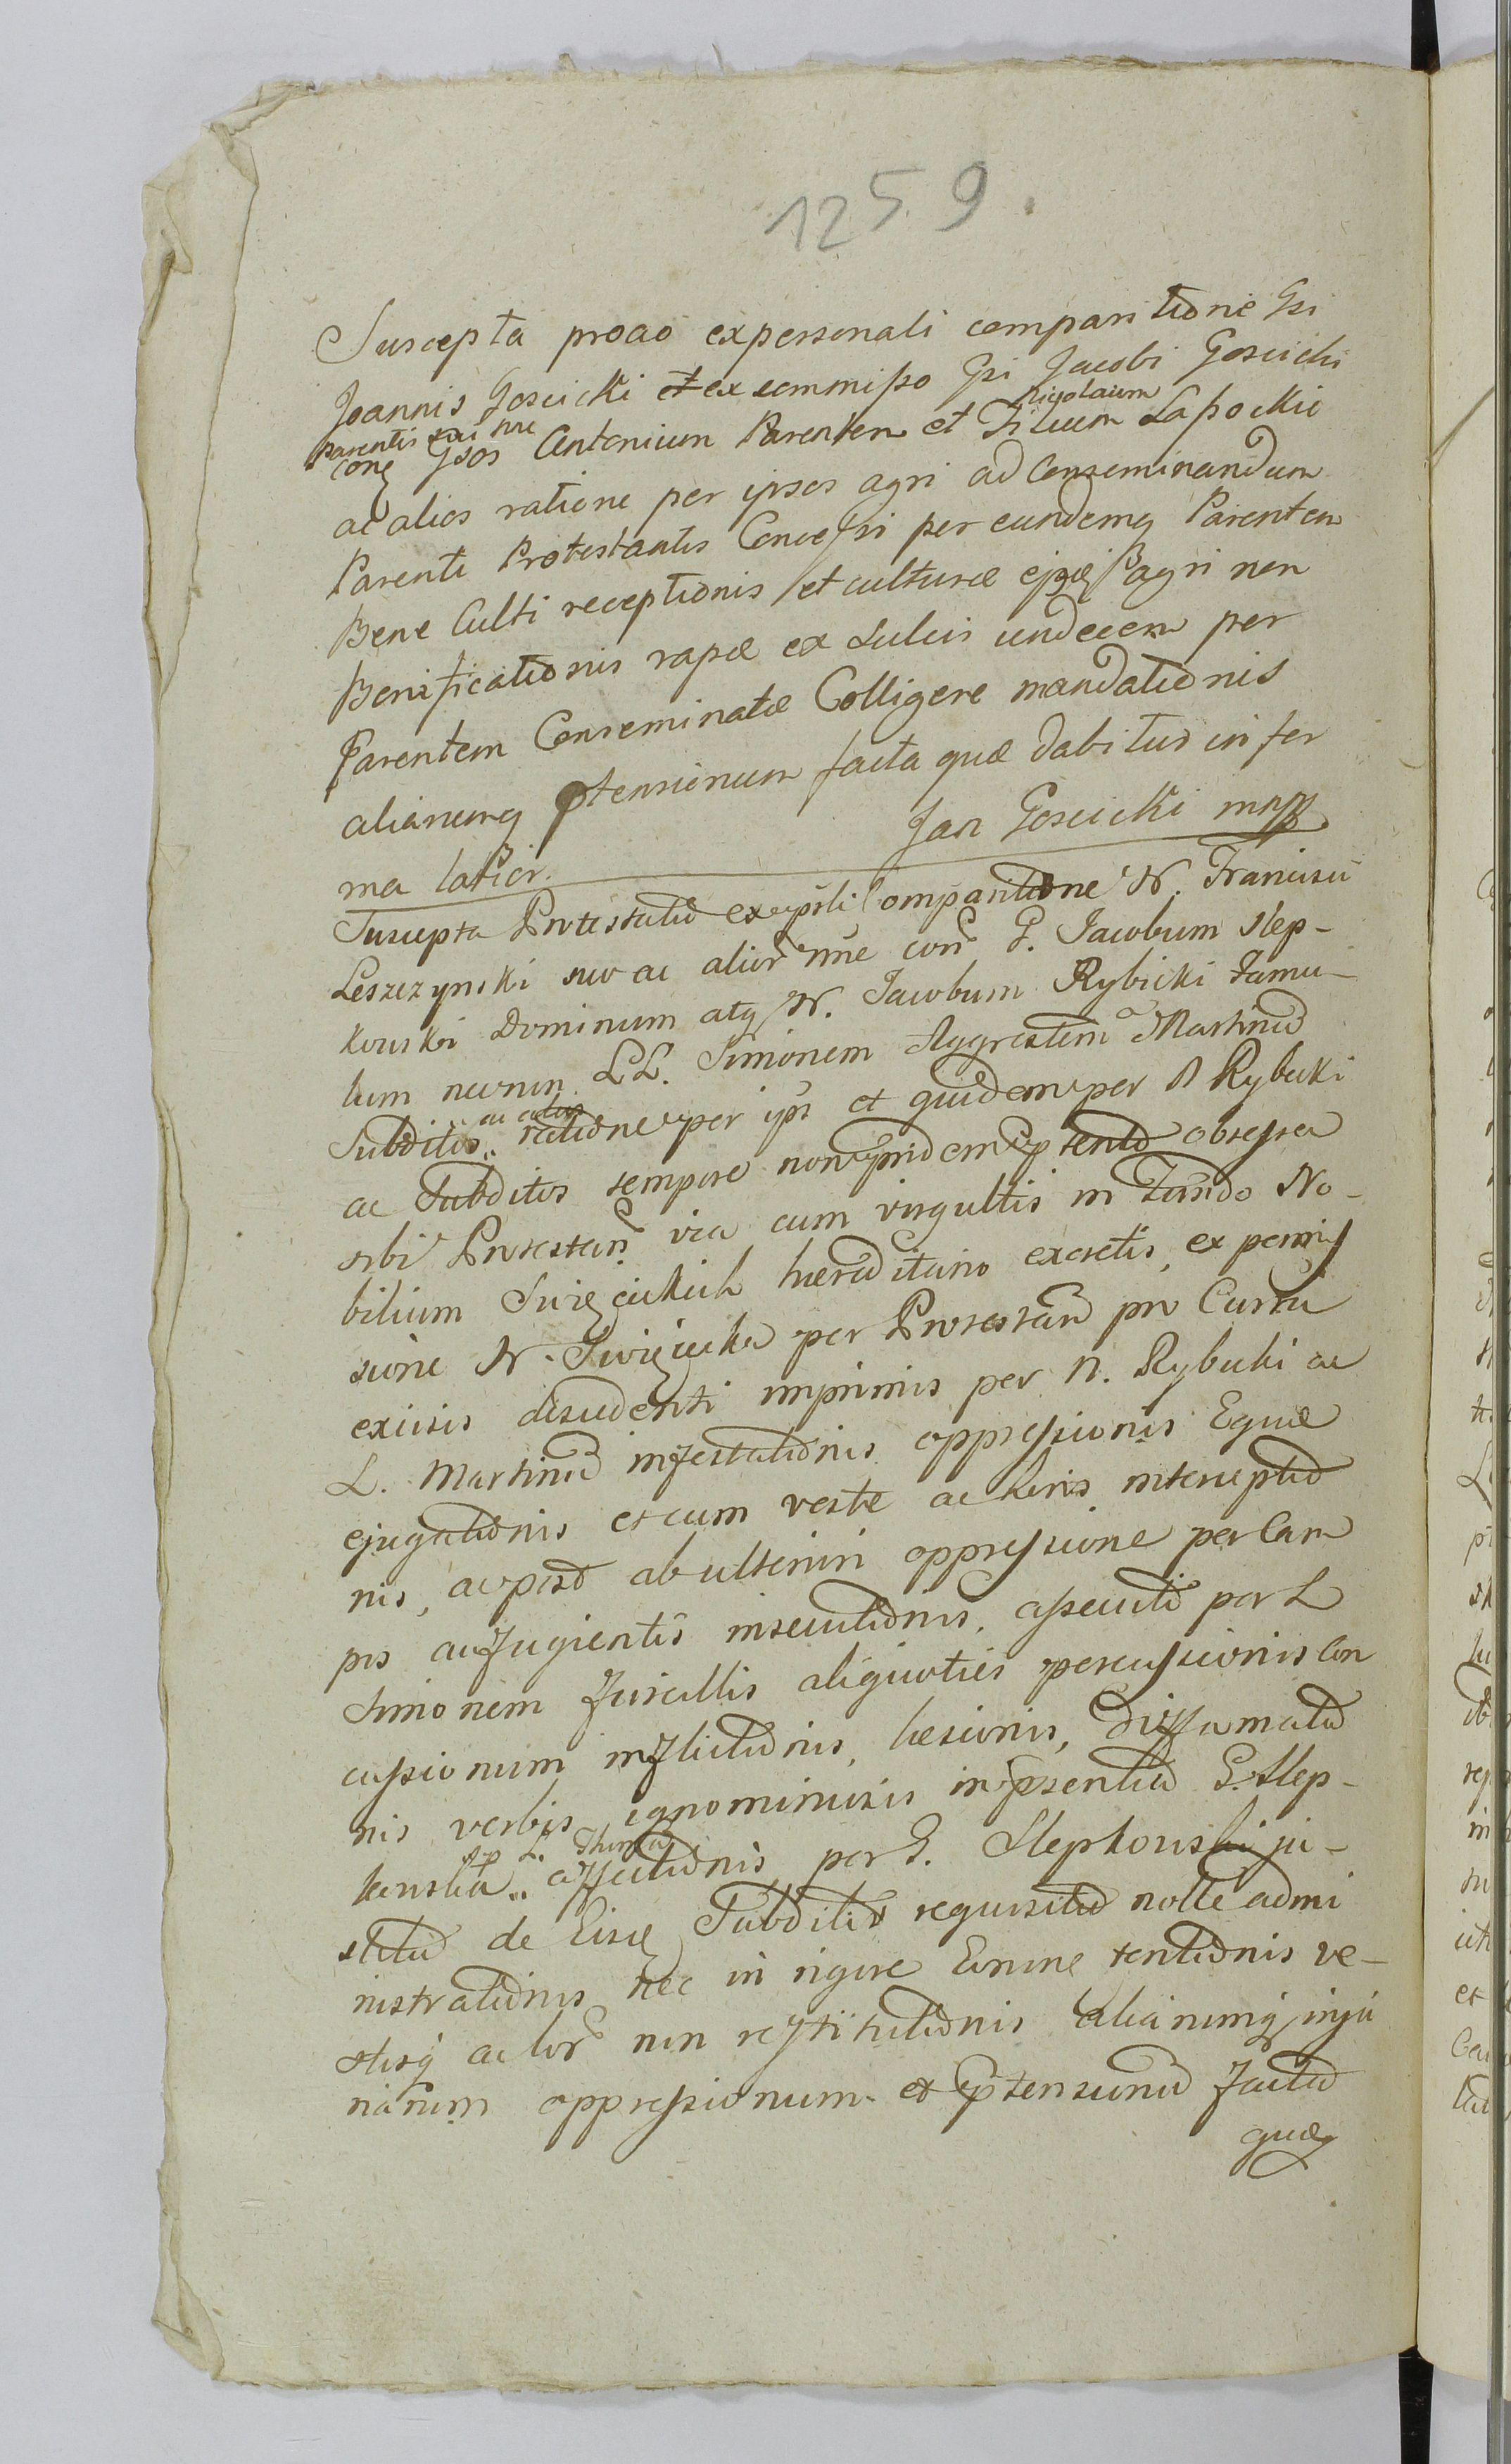 1259.
Suscepta proao ex personali comparitione Gsi
Joannis Goscicki et ex commisso Gsi Jacobi Goscicki
Parentis sui nne Nicolaum
conq Gsos Antonium Parentem et Filium Lapockie
ac alios ratione per ipsos agri ad Conseminandum
Parenti Protestantis Concessi per eundemq Parentem
Bene Culti receptionis et culturæ agri non
Benificationis rapæ ex Sulcis undecem per
Parentem Conseminatæ Colligere mandationis
aliarumq ptensionum facta quæ dabitur infer
ma latior. Jan Goscicki mpp
Suscepta Protestatio ex psli Comparitione N. Francisci
Leszczynski suo ac alior nne con G. Jacobum Slep-
kouski Dominum atq N. Jacobum Rybicki Famu-
lum necnon LL. Simonem Aggrestem Martinū
Subditos ac alios ratione per ips et quidem per N Rybicki
ac Subditos tempore non pridem ptento obsessa
sibi Protestan via cum virgultis in Fundo No-
bilium Swięcickich hæreditario exsectis, ex permis
sione N. Swięcicki per Protestan pro Curru
excisis discedenti imprimis per N. Rybicki ac
L. Martinū infestationis oppressionis Equæ
ejugationis et cum veste ac loris interceptio
nis, ac post ab ulteriori oppressione per Cam
pos aufugientis insecutionis, assecuti per L
Simonem fuscillis aliquoties percussionis Con
cussionum inflictionis, læsionis, Diffamatio
nis verbis ignominiosis in psentia G. Slep-
kouski affectionis per G. Slepkouski ju-
stitiæ de Eisq Subditis requisita nolle admi
nistrationis nec in rigore tentionis ve-
stisq ac lor non restitutionis aliarumq inju
riarum oppressionum et ptensionū facta
quæq